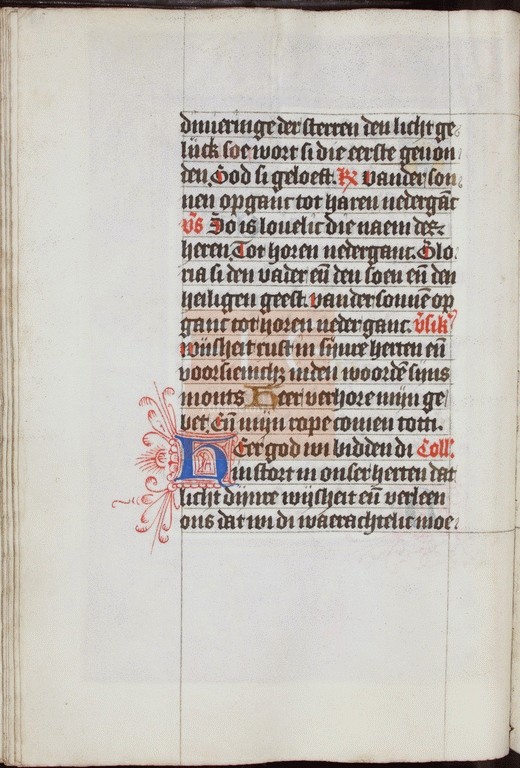 dmueringe der sterren den licht ge
lück soe wort si die eerste geuon
den. God si geloeft. R vander son
nen opganc tot haren nedergāc
v̄s So is louelic die naem des
heren. Tot horen nederganc. Glo
ria si den vader eñ den soen eñ den
heiligen geest. vander sonnē op
ganc tot horen neder ganc. v̄sik
wijsheit rust in sijnre herten eñ
voorsienich3 inden woordē sijns
monts Heer verhore mijn ge
bet. Eñ mijn rope comen totti.
HEer god wi bidden di Coll.
du stort in onser herten dat
licht dijnre wijsheit eñ verleen
ons dat wi di waerachtelic moe